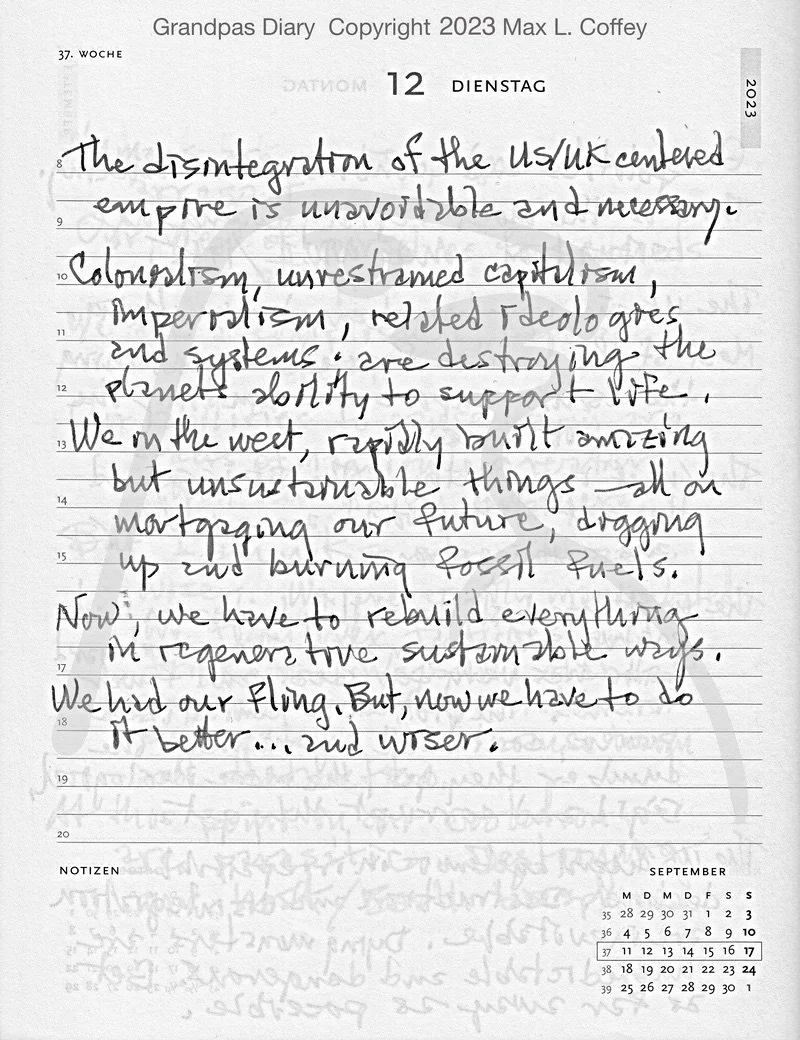 Grandpas Diary Copyright 2023 Max L. Coffey
37. WOCHE
12 DIENSTAG
2023
8 The disintegration of the US/UK centered
empire is unavoidable and necessary.
9
10 Colonialism, unrestrained capitalism,
imperialism, related ideologies
11
and systems. are destroying the
12 planets ability to support life.
13 We in the west, rapidly built amazing
but unsustainable things — all on
14
mortgaging our future, digging
15 up and burning fossil fuels.
Now, we have to rebuild everything
in regenerative sustainable ways.
17
We had our fling. But, now we have to do
18
it better... and wiser.
19
20
NOTIZEN
SEPTEMBER
M D M D F S S
35 28 29 30 31 1 2 3
36 4 5 6 7 8 9 10
37 11 12 13 14 15 16 17
38 18 19 20 21 22 23 24
39 25 26 27 28 29 30 1